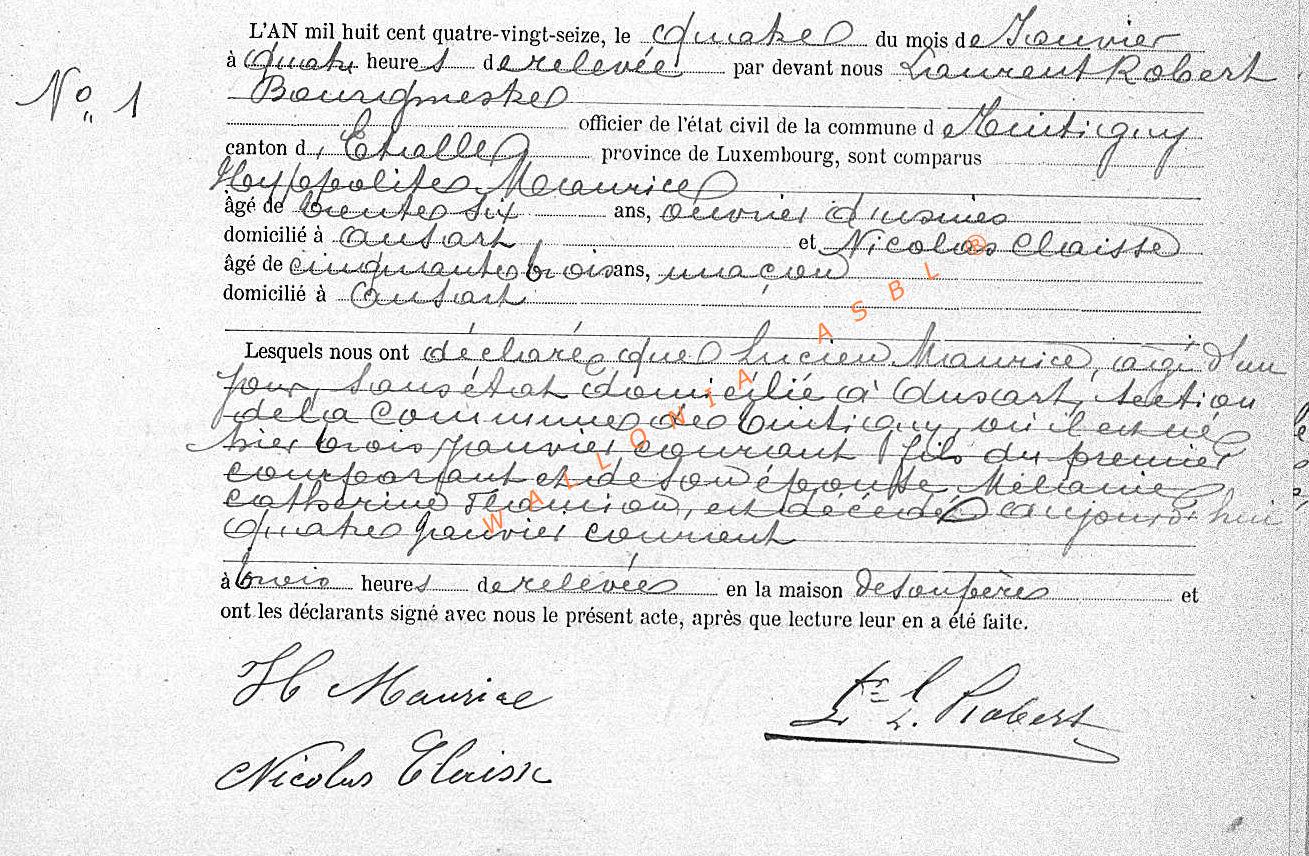 L'AN mil huit cent quatre-vingt-seize, le quatre du mois de Janvier
No. 1
à quatre heures de relevée par devant nous Laurent Robert
Bourgmestre
officier de l'état civil de la commune d Tintigny
canton d' Etalle province de Luxembourg, sont comparus
Hyppolite Maurice
âgé de trente six ans, ouvrier d'usines
domicilié à Ansart et Nicolas Claisse
âgé de cinquante trois ans, maçon
domicilié à Ansart
Lesquels nous ont déclaré que Lucien Maurice, agé d'un
jour, sans état domicilié à Ansart, section
de la Commune de Tintigny, où il est né
hier trois janvier courant, fils du premier
comparant et de son épouse Mélanie
Catherine, est décédé aujourd'hui
quatre janvier courant
à trois heures de relevée en la maison de son père et
ont les déclarants signé avec nous le présent acte, après que lecture leur en a été faite.
H Maurice
L. Robert
Nicolas Claisse
WALLONIA ASBL ®